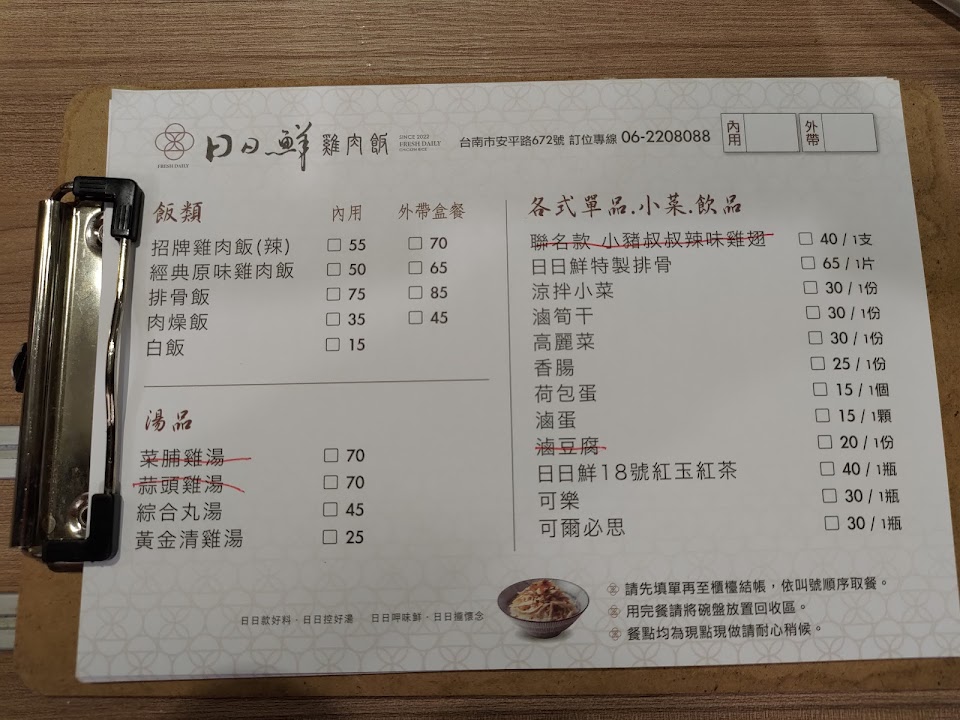 日日鮮 雞肉飯 SINCE 2022 FRESH DAILY 台南市安平路672號 訂位專線 06-2208088 內用 外帶
FRESH DAILY
飯類 內用 外帶盒餐
招牌雞肉飯(辣) 55 70
經典原味雞肉飯 50 65
排骨飯 75 85
肉燥飯 35 45
白飯 15
湯品
菜脯雞湯 70
蒜頭雞湯 70
綜合丸湯 45
黃金清雞湯 25
各式單品.小菜.飲品
聯名款 小豬叔叔辣味雞翅 40 / 1支
日日鮮特製排骨 65 / 1片
涼拌小菜 30 / 1份
滷筍干 30 / 1份
高麗菜 30 / 1份
香腸 25 / 1份
荷包蛋 15 / 1個
滷蛋 15 / 1顆
滷豆腐 20 / 1份
日日鮮18號紅玉紅茶 40 / 1瓶
可樂 30 / 1瓶
可爾必思 30 / 1瓶
日日款好料‧日日控好湯 日日呷味鮮‧日日擔懷念
請先填單再至櫃檯結帳，依叫號順序取餐。
用完餐請將碗盤放置回收區。
餐點均為現點現做請耐心稍候。